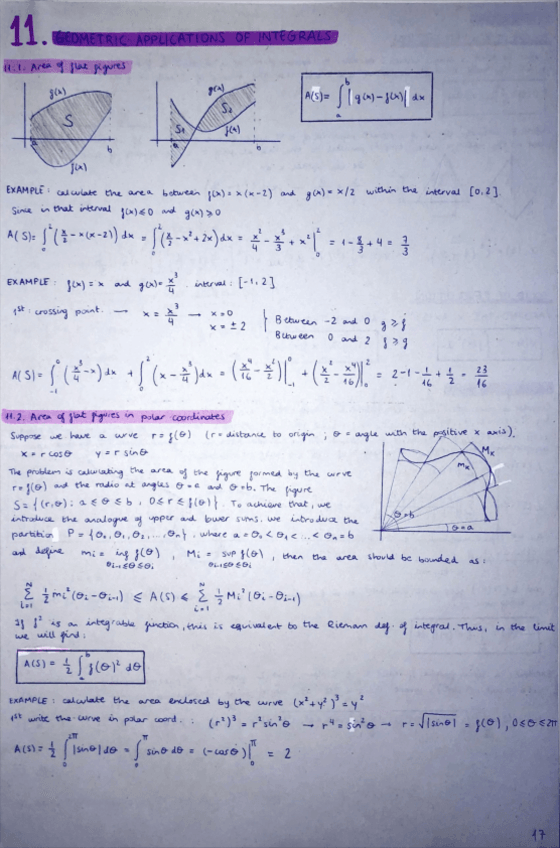 11. GEOMETRIC APPLICATIONS OF INTEGRALS
11.1. Area of flat figures
g(x) S f(x) a b
g(x) S₁ S₂ f(x) b
A(S) = ∫ₐᵇ |g(x) - f(x)| dx
EXAMPLE: calculate the area between f(x) = x(x-2) and g(x) = x/2 within the interval [0,2].
Since in that interval f(x) ≤ 0 and g(x) ≥ 0
A(S) = ∫₀² (x/2 - x(x-2)) dx = ∫₀² (x/2 - x² + 2x) dx = x²/4 - x³/3 + x² |₀² = 1 - 8/3 + 4 = 7/3
EXAMPLE: f(x) = x and g(x) = x³/4 interval: [-1,2]
1st: crossing point: → x = x³/4 → x = 0
x = ± 2
Between -2 and 0 g ≥ f
Between 0 and 2 f ≥ g
A(S) = ∫₋₁⁰ (x³/4 - x) dx + ∫₀² (x - x³/4) dx = (x⁴/16 - x²/2) |₋₁⁰ + (x²/2 - x⁴/16) |₀² = 2 - 1 - 1/16 + 1/2 = 23/16
11.2. Area of flat figures in polar coordinates
Suppose we have a curve r = f(θ) (r = distance to origin ; θ = angle with the positive x axis),
x = r cosθ y = r sinθ
The problem is calculating the area of the figure formed by the curve
r = f(θ) and the radio at angles θ = a and θ = b. The figure
S = {(r,θ): a ≤ θ ≤ b, 0 ≤ r ≤ f(θ)}. To achieve that, we
introduce the analogue of upper and lower sums. we introduce the
partition P = {θ₀, θ₁, θ₂, ..., θₙ}, where a = θ₀ < θ₁ < ... < θₙ = b
Mₖ mₖ θ=b θ=a
and define mᵢ = inf f(θ), Mᵢ = sup f(θ), then the area should be bounded as:
θᵢ₋₁≤θ≤θᵢ θᵢ₋₁≤θ≤θᵢ
∑ᵢ₌₁ᴺ 1/2 mᵢ² (θᵢ - θᵢ₋₁) ≤ A(S) ≤ ∑ᵢ₌₁ᴺ 1/2 Mᵢ² (θᵢ - θᵢ₋₁)
If f² is a integrable function, this is equivalent to the Rieman def. of integral. Thus, in the limit
we will find:
A(S) = 1/2 ∫ₐᵇ f(θ)² dθ
EXAMPLE: calculate the area enclosed by the curve (x²+y²)³ = y²
1st write the curve in polar coord.: (r²)³ = r² sin²θ → r⁴ = sin²θ → r = √|sinθ| = f(θ), 0 ≤ θ ≤ 2π
A(S) = 1/2 ∫₀²π |sinθ| dθ = ∫₀π sinθ dθ = (-cosθ) |₀π = 2
17